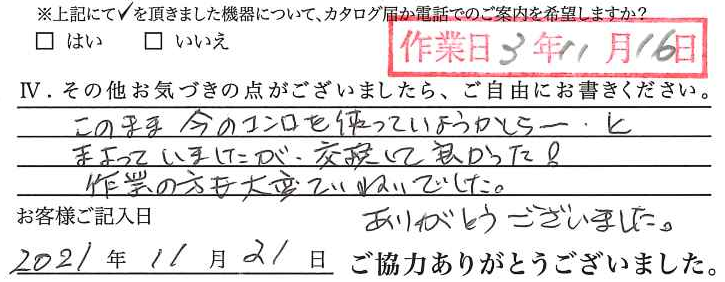 ※上記にて✓を頂きました機器について、カタログ届か電話でのご案内を希望しますか?
□ はい □ いいえ
作業日 3 年 11 月 16 日
Ⅳ．その他お気づきの点がございましたら、ご自由にお書きください。
このまま 今のコンロを使っていようかしらー・と
まよっていましたが、交換して良かった!
作業の方も大変ていねいでした。
ありがとうございました。
お客様ご記入日
2021 年 11 月 21 日 ご協力ありがとうございました。